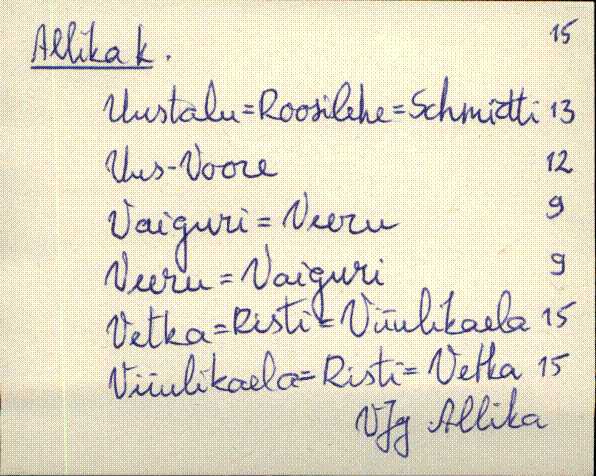 Allika k. 15
Uustalu = Roosilehe = Schmidti 13
Uus-Voore 12
Vaiguri = Veeru 9
Veeru = Vaiguri 9
Vetka = Risti = Viiulikaela 15
Viiulikaela = Risti = Vetka 15
VJg Allika